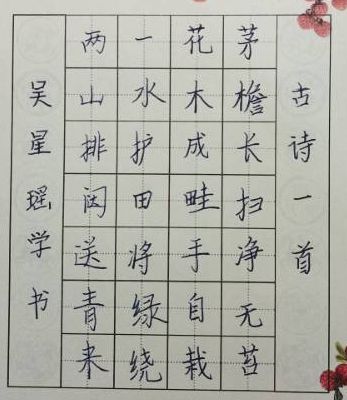 古诗一首
茅檐长扫净无苔
花木成畦手自栽
一水护田将绿绕
两山排闼送青来
吴星瑶学书